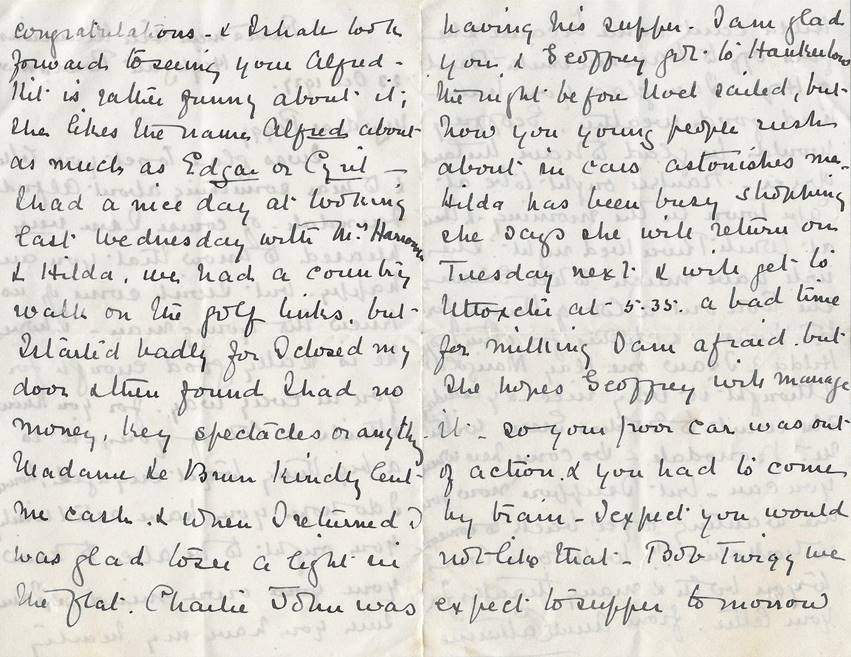 congratulations - & I shall look
forward to seeing your Alfred -
Kit is rather funny about it;
she likes the name Alfred about
as much as Edgar or Cyril -
I had a nice day at Woking
last Wednesday with Mrs
& Hilda, we had a country
walk on the golf links, but
I started badly for I closed my
door & then found I had no
money, key spectacles or anythg.
Madame Le Brun kindly lent
me cash. & when I returned I
was glad to see a light in
the flat. Charlie John was
having his supper - I am glad
you & Geoffrey got to
the night before Noel sailed, but
how you young people rush
about in cars astonishes me -
Hilda has been busy shopping
she says she will return on
Tuesday next & will get to
Uttoxeter at 5.35. a bad time
for milking I am afraid. but
she hopes Geoffrey will manage
it - so your poor car was out
of action. & you had to come
by train - I expect you would
not like that - Bob Twigg we
expect to supper tomorrow